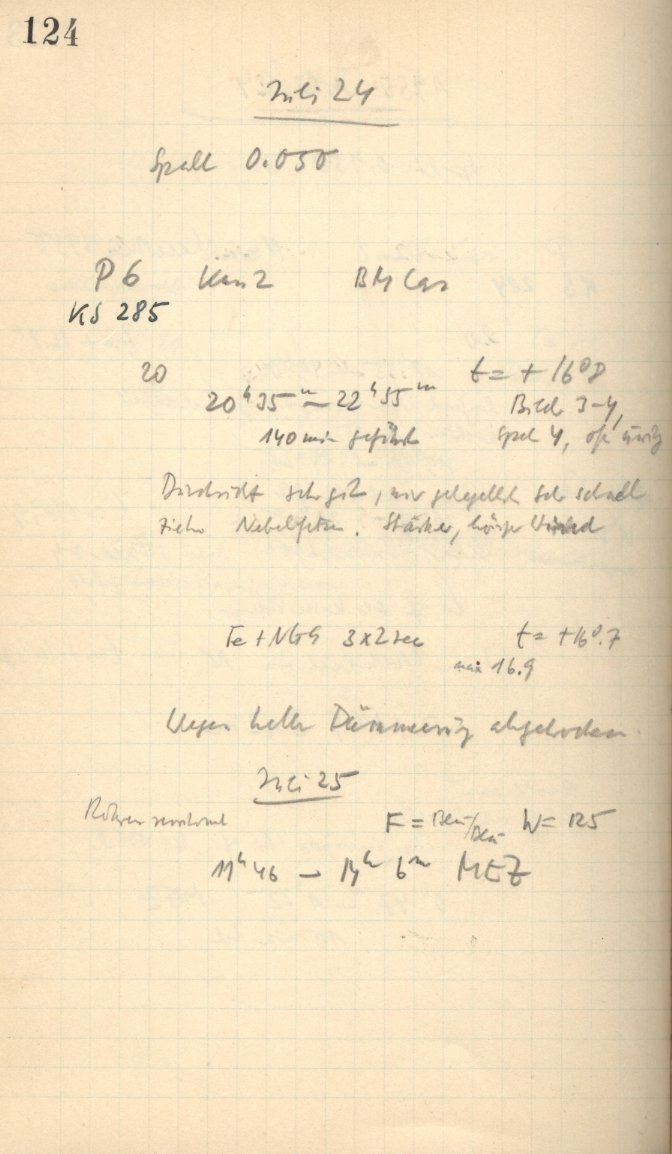 124
Juli 24
Spalt 0.050
P 6 Kam 2 BM Cas
KS 285
20 t = + 16°8
20ʰ35ᵐ — 22ʰ55ᵐ Bild 3-4,
140 min geführt 4, oft unruhig
Durchsicht sehr gut, nur gelegentlich sehr schnell
ziehende Nebelfetzen. Starker, böiger Wind
Fe + 3 x 2 sec t = +16°.7
max 16.9
Wegen heller Dämmerung abgebrochen.
Juli 25
F = Blau/Blau W = 125
11ʰ46 — 14ʰ 6ᵐ MEZ